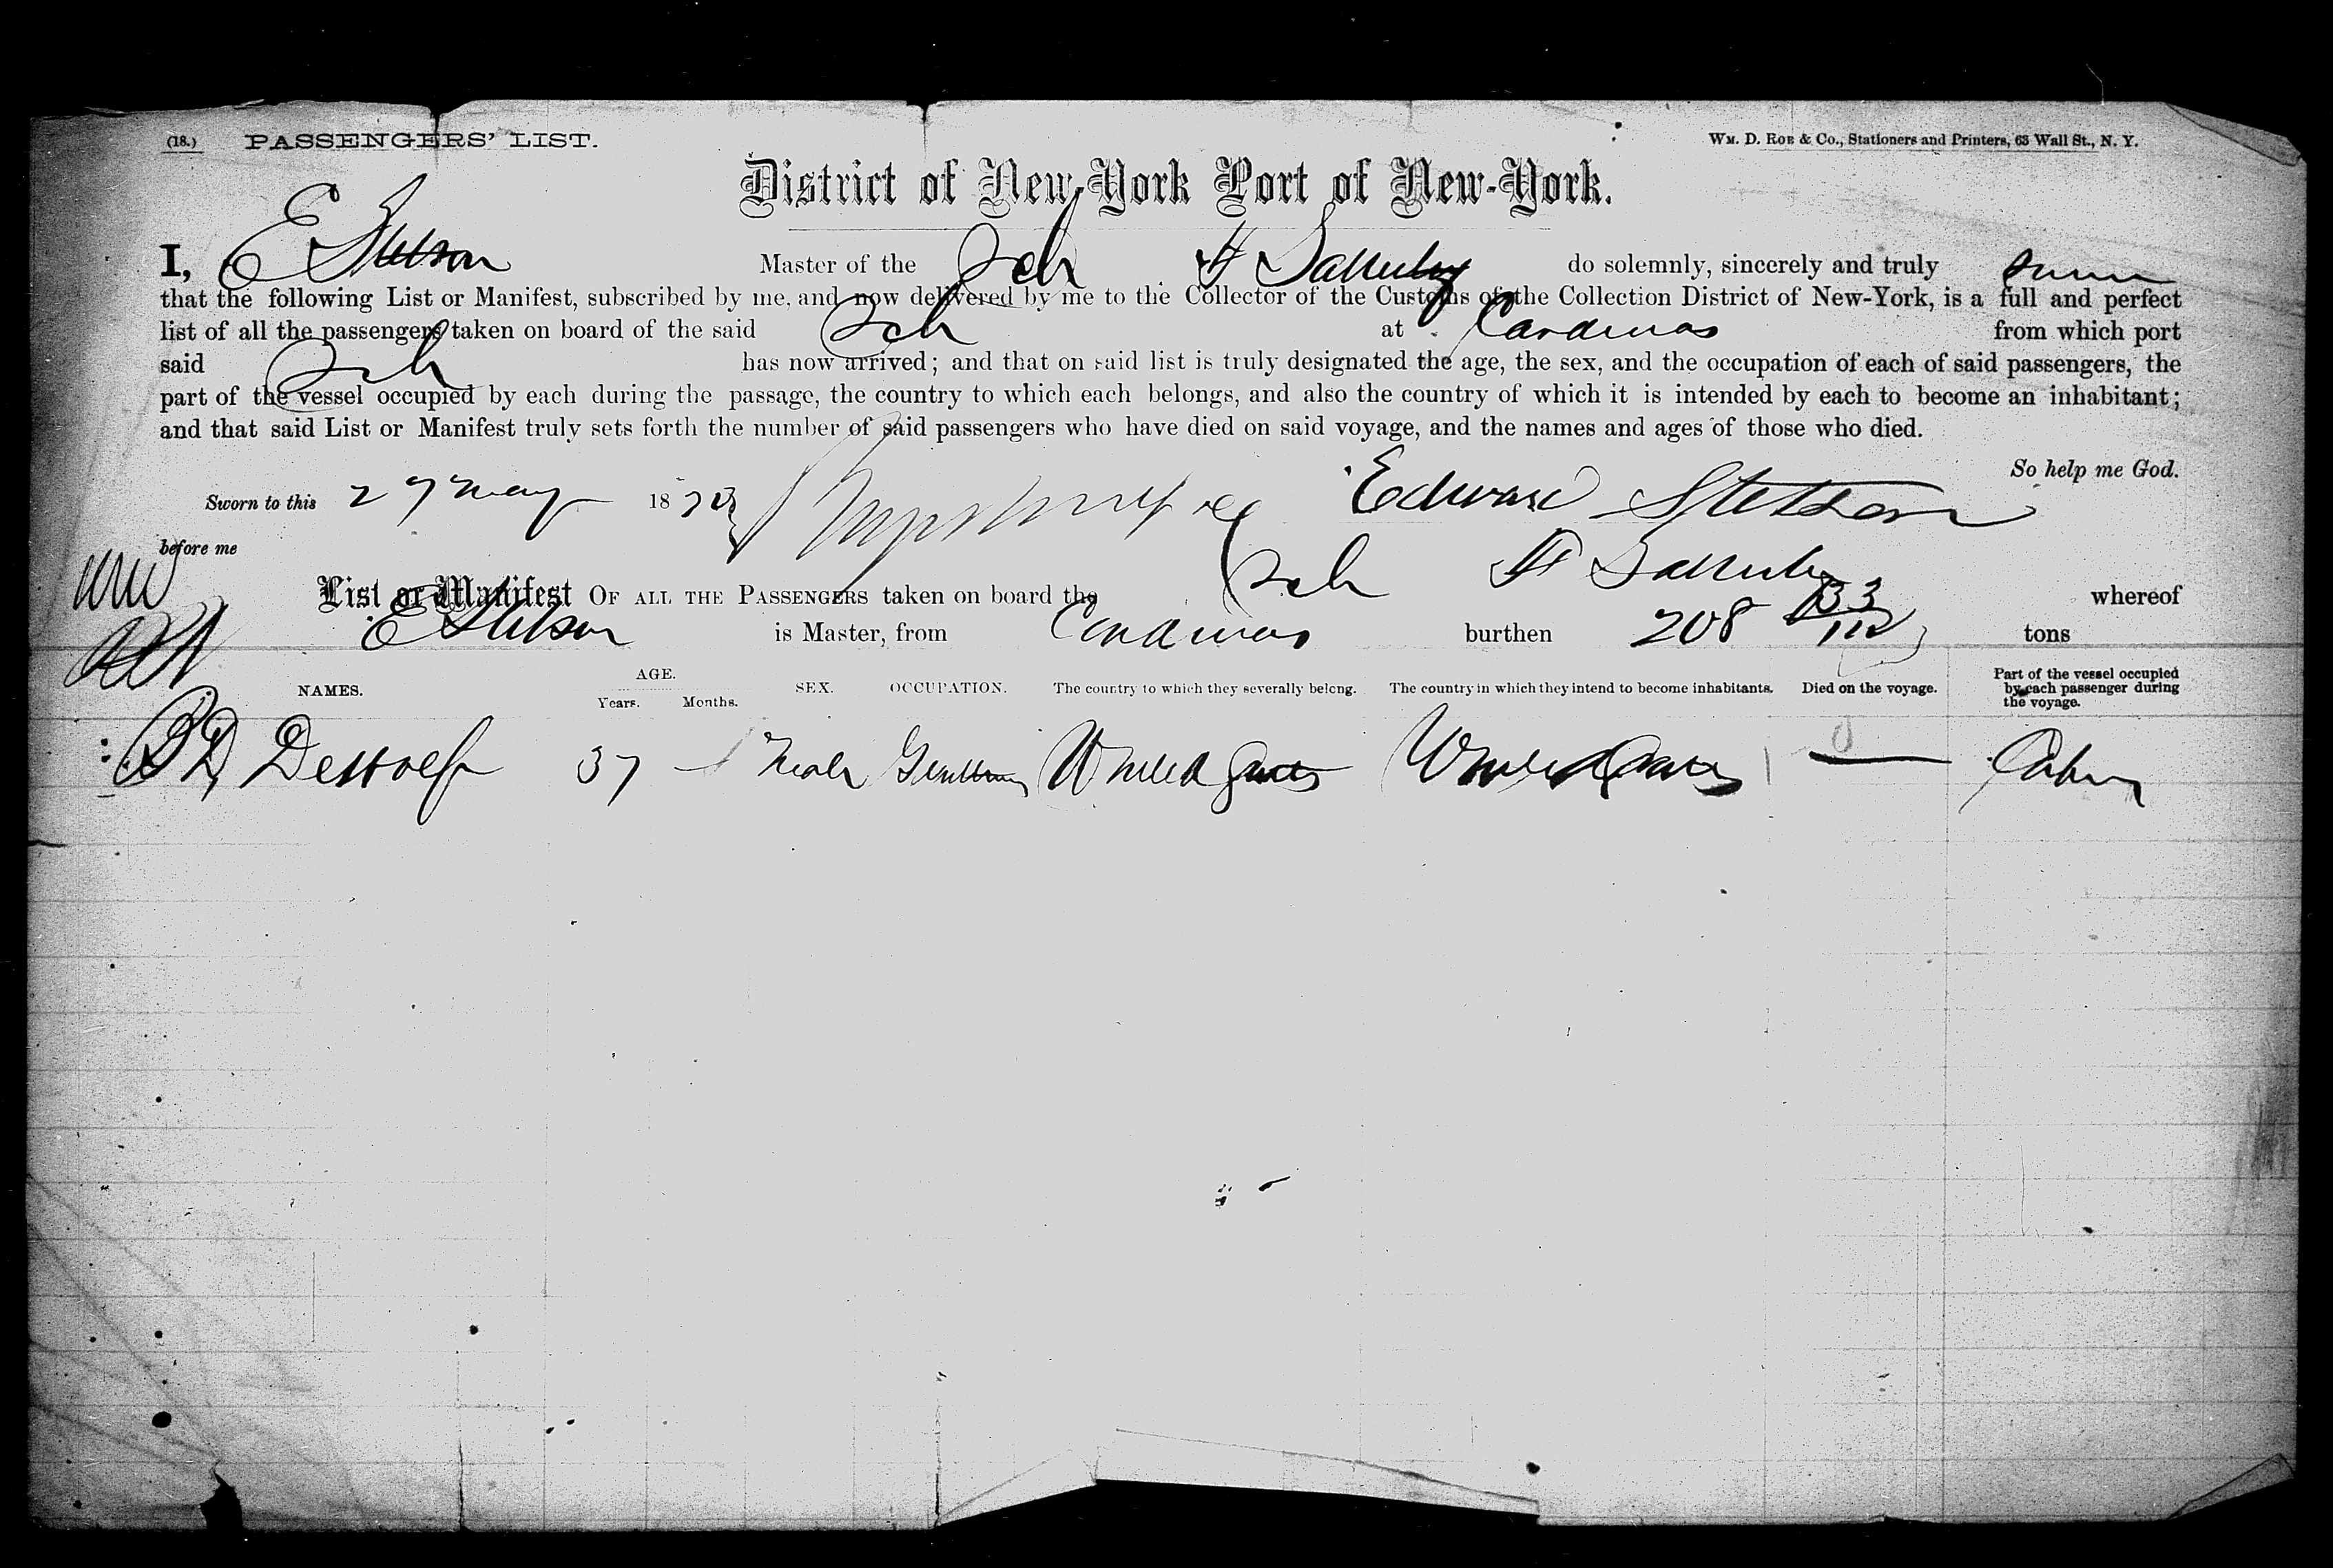 (18.) PASSENGERS' LIST. WM. D. ROE & CO., Stationers and Printers, 63 Wall St., N. Y.
District of New-York Port of New-York.
I, E Stetson Master of the Sch do solemnly, sincerely and truly
that the following List or Manifest, subscribed by me, and now delivered by me to the Collector of the Customs of the Collection District of New-York, is a full and perfect
list of all the passengers taken on board of the said Sch at Cardenas from which port
said Sch has now arrived; and that on said list is truly designated the age, the sex, and the occupation of each of said passengers, the
part of the vessel occupied by each during the passage, the country to which each belongs, and also the country of which it is intended by each to become an inhabitant;
and that said List or Manifest truly sets forth the number of said passengers who have died on said voyage, and the names and ages of those who died.
So help me God.
Sworn to this 27 May 1873 Edward Stetson
before me
List or Manifest OF ALL THE PASSENGERS taken on board the Sch whereof
E Stetson is Master, from Cardenas burthen 208 tons
NAMES. AGE. Years. Months. SEX. OCCUPATION. The country to which they severally belong. The country in which they intend to become inhabitants. Died on the voyage. Part of the vessel occupied by each passenger during the voyage.
B D DeWolf 37 — Male Gentleman United States United States — Cabin